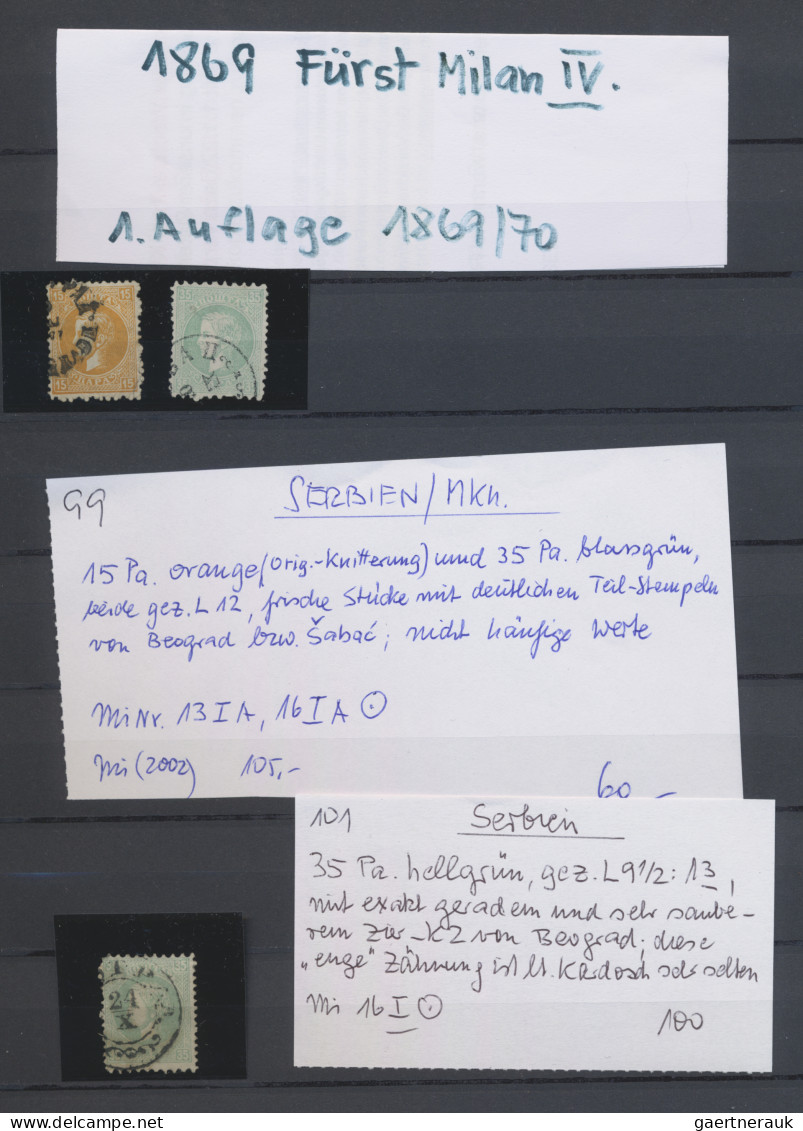 1869 Fürst Milan IV.
1. Auflage 1869/70
15 15
ПАРА
15 15
35 35
99 SERBIEN/Mkn.
15 Pa. orange (Orig.-Knitterung) und 35 Pa. blassgrün,
beide gez. L 12, frische Stücke mit deutlichen Teil-Stempeln
von Beograd bzw. Šabac; nicht häufige Werte
MiNr. 13 I A, 16 I A ⊙
Mi (2002) 105,-
60,-
101 Serbien
35 Pa. hellgrün, gez. L 9 1/2 : 13,
mit exakt geradem und sehr saube-
rem Zier-K2 von Beograd; diese
„enge" Zähnung ist lt. Kardosch sehr selten
Mi 16 I ⊙ 100
24
X
35
www.delcampe.net
gaertnerauk